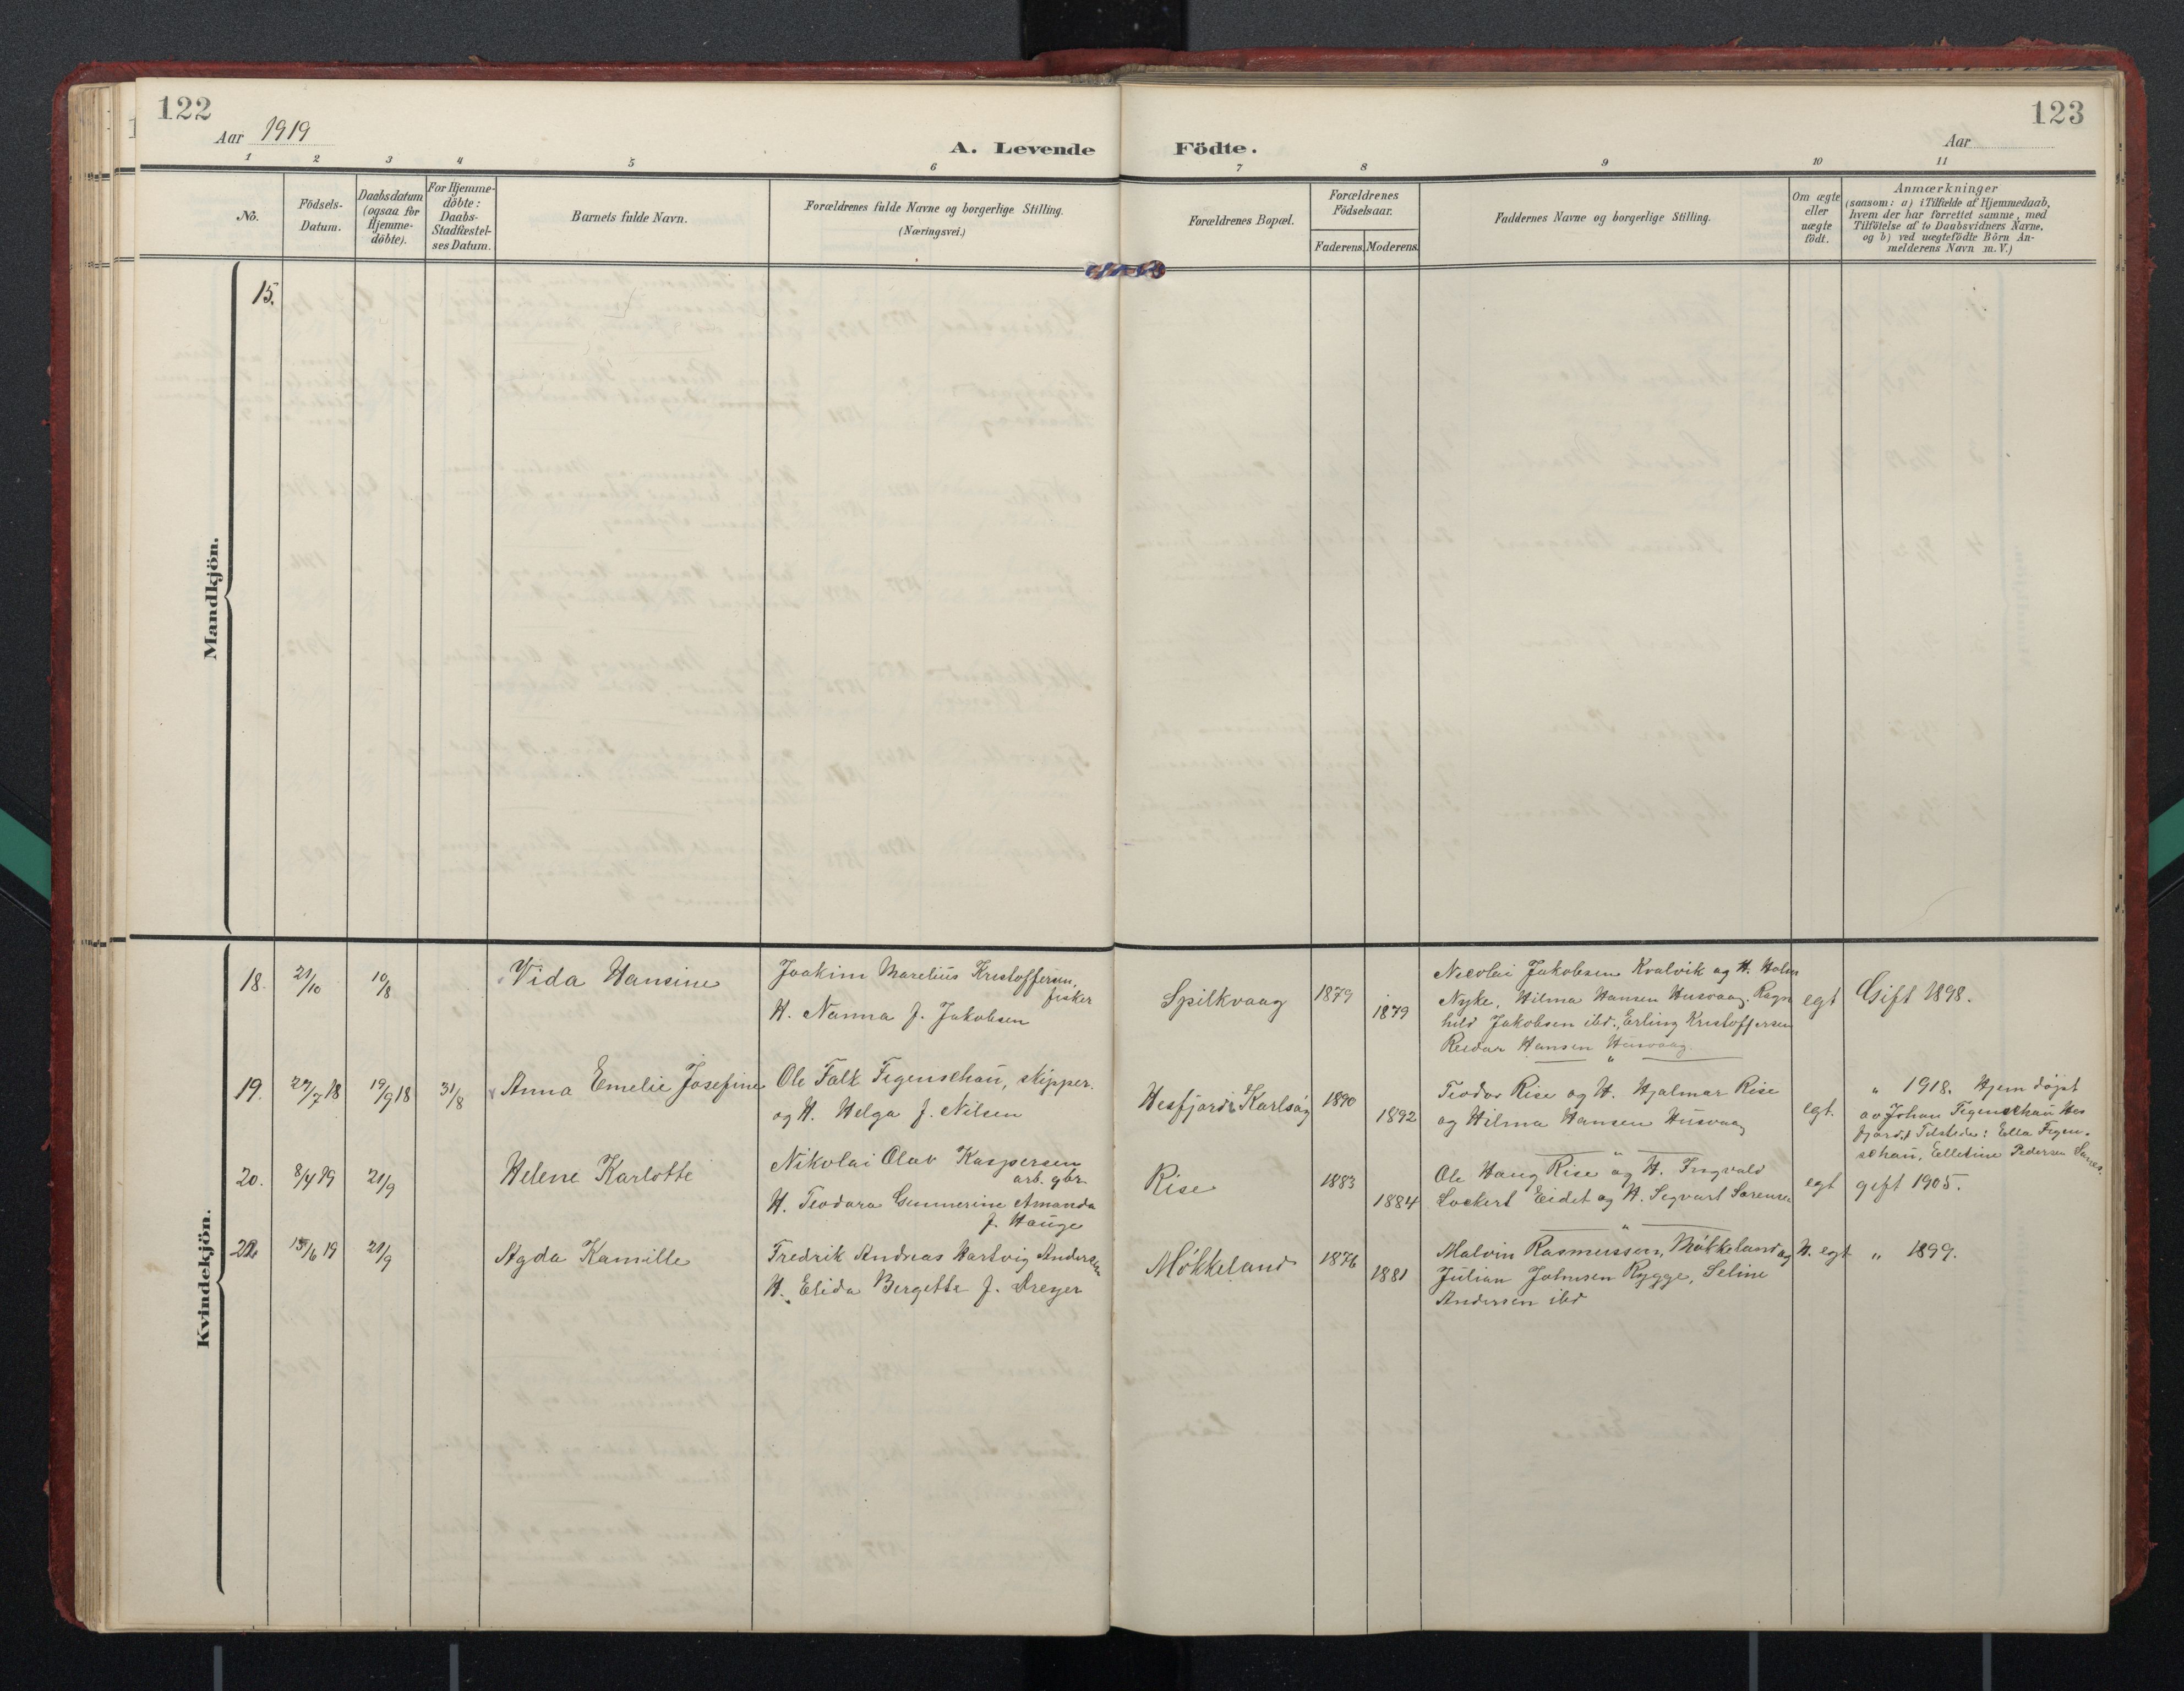 122
Aar 1919
A. Levende Födte.
123
Aar
1 2 3 4 5 6 7 8 9 10 11
No.
Födsels-
Datum.
Daabsdatum
(ogsaa for
Hjemme-
döbte).
For Hjemme-
döbte:
Daabs-
Stadfæstel-
ses Datum.
Barnets fulde Navn.
Forældrenes fulde Navne og borgerlige Stilling.
(Næringsvei.)
Forældrenes Bopæl.
Forældrenes
Födselsaar.
Faderens. Moderens.
Faddernes Navne og borgerlige Stilling.
Om ægte
eller
uægte
födt.
Anmærkninger
(saasom: a) i Tilfælde af Hjemmedaab,
hvem der har forrettet samme, med
Tilföielse af to Daabsvidners Navne,
og b) ved uægtefödte Börn An-
melderens Navn m. V.)
Mandkjön.
15.
Kvindekjön.
18. 21/10 10/8 Vida Hansine
Joakim Marelius Kristoffersen,
fisker
H. Nanna f. Jakobsen
Spilkvaag 1879 1879
Nicolai Jakobsen Kvalvik og H. Holm
Nyke, Hilma Hansen Husvaag. Ragn
hild Jakobsen ibd., Erling Kristoffersen
Reidar Hansen Husvaag.
egt Gift 1898.
19. 27/7 18 19/9 18 31/8 Anna Emelie Josefine
Ole Falk Figenschau, skipper.
og H. Helga f. Nilsen
Hesfjord i Karlsøy 1890 1892
Teodor Rise og H. Hjalmar Rise
og Hilma Hansen Husvaag
egt. " 1918. Hjem døpt
av Johan Figenschau Hes
fjord. Tilstede: Ella Figen-
schau, Elletine Pedersen
20. 8/4 19 21/9 Helene Karlotte
Nikolai Olav Kaspersen
arb. gbr.
H. Teodora Gunnerine Amanda
f. Hauge
Rise 1883 1884
Ole Haug Rise og H. Ingvald
Lockert Eidet og H. Segvart Sørensen
egt gift 1905.
22. 15/6 19 21/9 Agda Kamille
Fredrik Andreas Hartvig Andersen
H. Elida Bergette f. Dreyer
Møkkeland 1876 1881
Malvin Rasmussen, Møkkeland og H.
Julian Johnsen Rygge, Seline
Andersen ibd
egt " 1899.